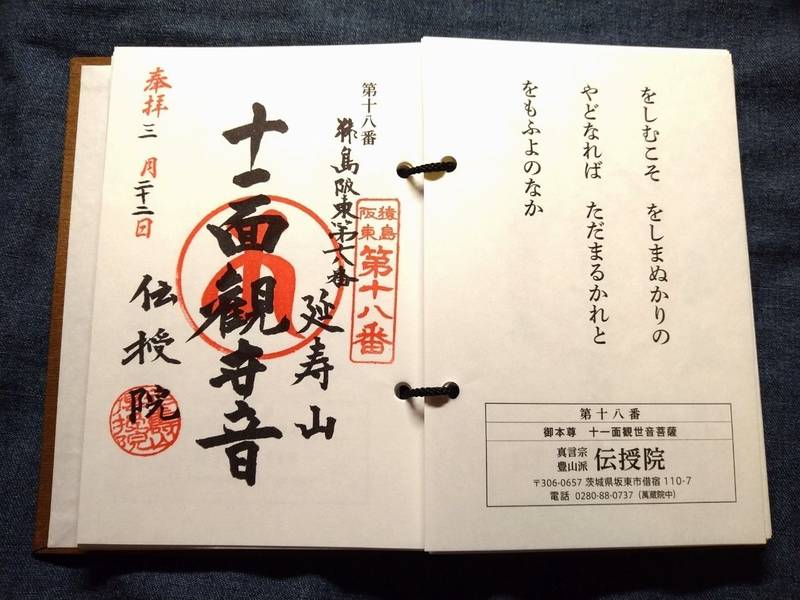 をしむこそ　をしまぬかりの
やどなれば　ただまるかれと
をもふよのなか
第十八番
御本尊　十一面観世音菩薩
真言宗
豊山派
伝授院
〒306-0657 茨城県坂東市借宿 110-7
電話 0280-88-0737（萬蔵院中）
第十八番
猿島阪東第十八番
猿島
阪東
第十八番
延寿山
十一面観世音
伝授院
奉拝 三 月二十二日